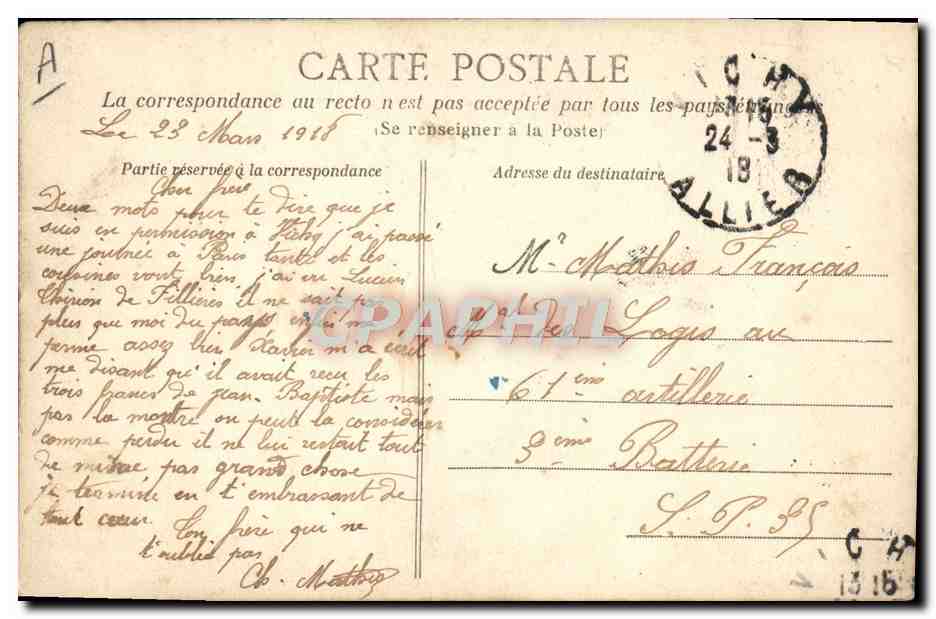 A
CARTE POSTALE
La correspondance au recto n'est pas acceptée par tous les pays étrangers
(Se renseigner à la Poste)
Le 23 Mars 1918
Partie réservée à la correspondance
Cher frère
Deux mots pour te dire que je
suis en permission à Vichy j'ai passé
une journée à Paris tante et les
cousines vont bien j'ai vu Lucien
Thirion de Fillières il ne sait pas
plus que moi du pays enfin me
ferme assez bien Xavier m'a écrit
me disant qu'il avait reçu les
trois francs de jean Baptiste mais
pas la montre on peut la considérer
comme perdu il ne lui restait tout
de même pas grand chose
je termine en t'embrassant de
tout cœur.
Ton frère qui ne
t'oublie pas
Ch. Mathis
Adresse du destinataire
Mr Mathis François
Mal Des Logis au
61ème artillerie
3ème Batterie
S. P. 35
CHY
15
24 -3
18
ALLIER
CH
15 15
CPAPHIL